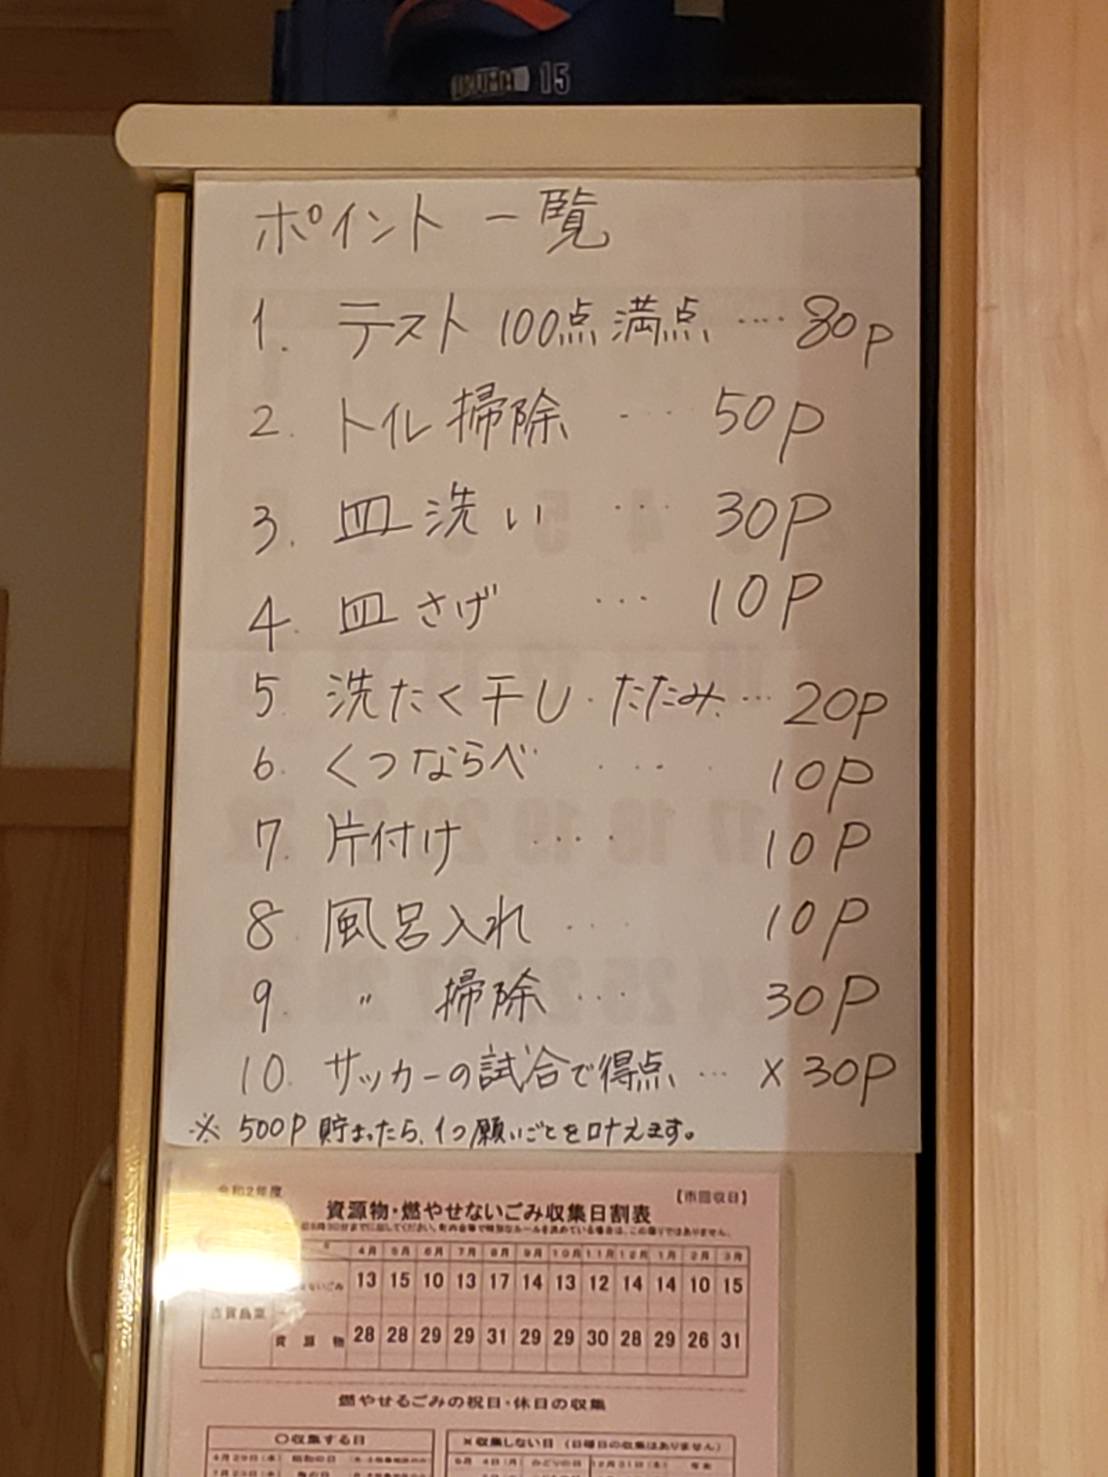 15
ポイント一覧
1. テスト100点満点 ‥‥ 80p
2. トイレ掃除 ‥‥ 50P
3. 皿洗い … 30P
4. 皿さげ … 10P
5 洗たく干し・たたみ … 20P
6. くつならべ ‥‥ 10P
7. 片付け ‥‥ 10P
8 風呂入れ … 10P
9. 〃 掃除 … 30P
10. サッカーの試合で得点 … × 30P
※ 500P貯まったら、1つ願いごとを叶えます。
令和2年度 【市回収日】
資源物・燃やせないごみ収集日割表
4月 5月 6月 7月 8月 9月 10月 11月 12月 1月 2月 3月
ないごみ 13 15 10 13 17 14 13 12 14 14 10 15
資源物 28 28 29 29 31 29 29 30 28 29 26 31
燃やせるごみの祝日・休日の収集
〇収集する日 ×収集しない日(日曜日の収集はありません)
4月29日(水) 昭和の日